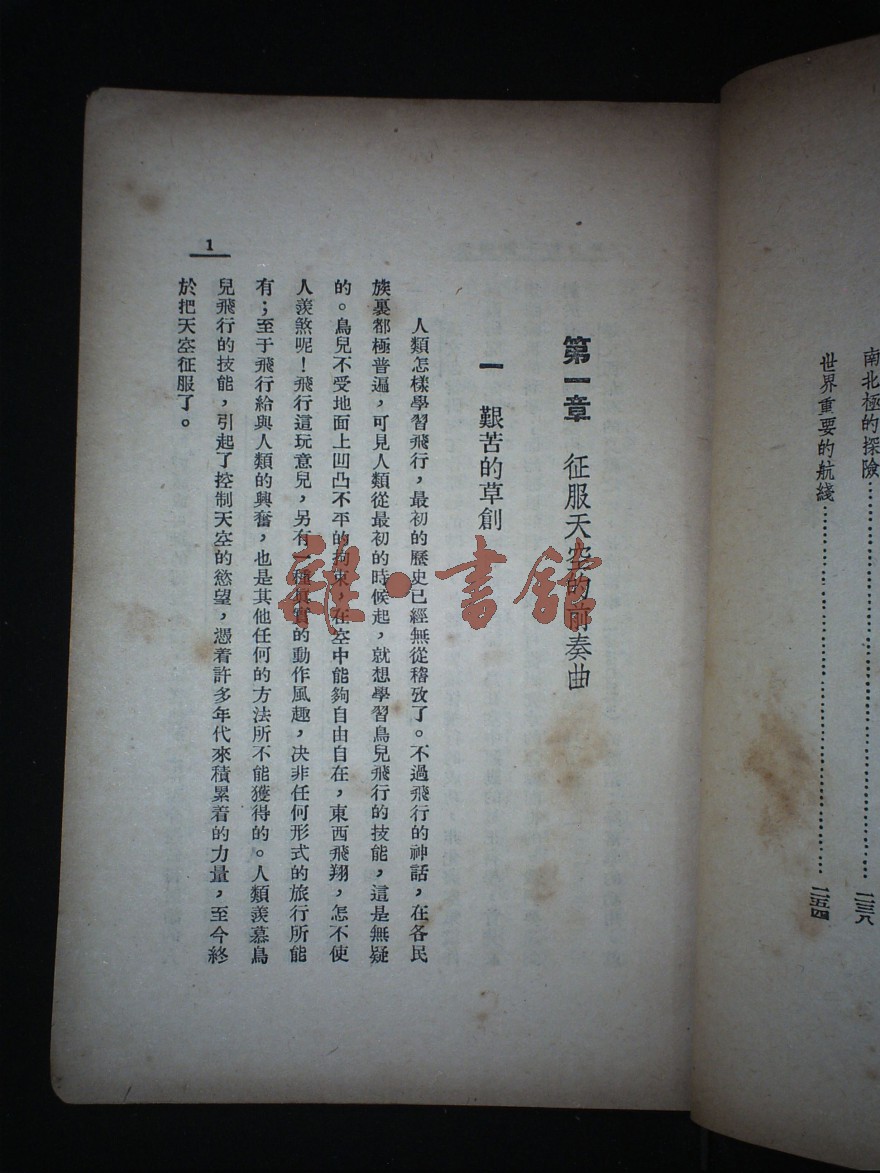 南北極的探險……………………………二三八
世界重要的航綫……………………………二五四
第一章 征服天空的前奏曲
一 艱苦的草創
人類怎樣學習飛行，最初的歷史已經無從稽攷了。不過飛行的神話，在各民
族裏都極普遍，可見人類從最初的時候起，就想學習鳥兒飛行的技能，這是無疑
的。鳥兒不受地面上凹凸不平的拘束，在空中能夠自由自在，東西飛翔，怎不使
人羨煞呢！飛行這玩意兒，另有一種真實的動作風趣，决非任何形式的旅行所能
有；至于飛行給與人類的興奮，也是其他任何的方法所不能獲得的。人類羨慕鳥
兒飛行的技能，引起了控制天空的慾望，憑着許多年代來積累着的力量，至今終
於把天空征服了。
1
雜·書舘